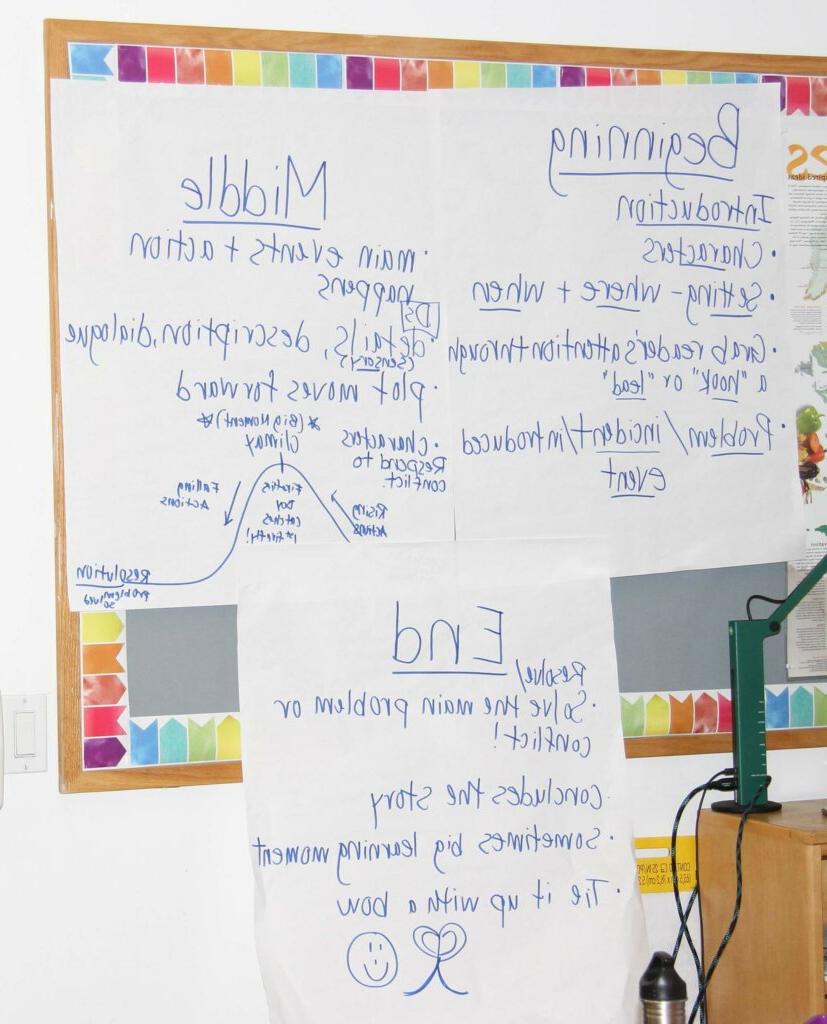 Beginning
Introduction
• Characters
• Setting - where + when
• Grab reader's attention through
a "hook" or "lead"
• Problem/incident/introduced
event
Middle
• main events + action
happens
DS
• details, description, dialogue
(sensory)
• plot moves forward
• Characters
Respond to
conflict
*(Big Moment)*
Climax
Fireflies
Boy
catches
1st firefly!
Rising
Actions
Falling
Actions
Resolution
problem solved
End
Resolve/
• Solve the main problem or
conflict!
• Concludes the story
• Sometimes big learning moment
• Tie it up with a bow